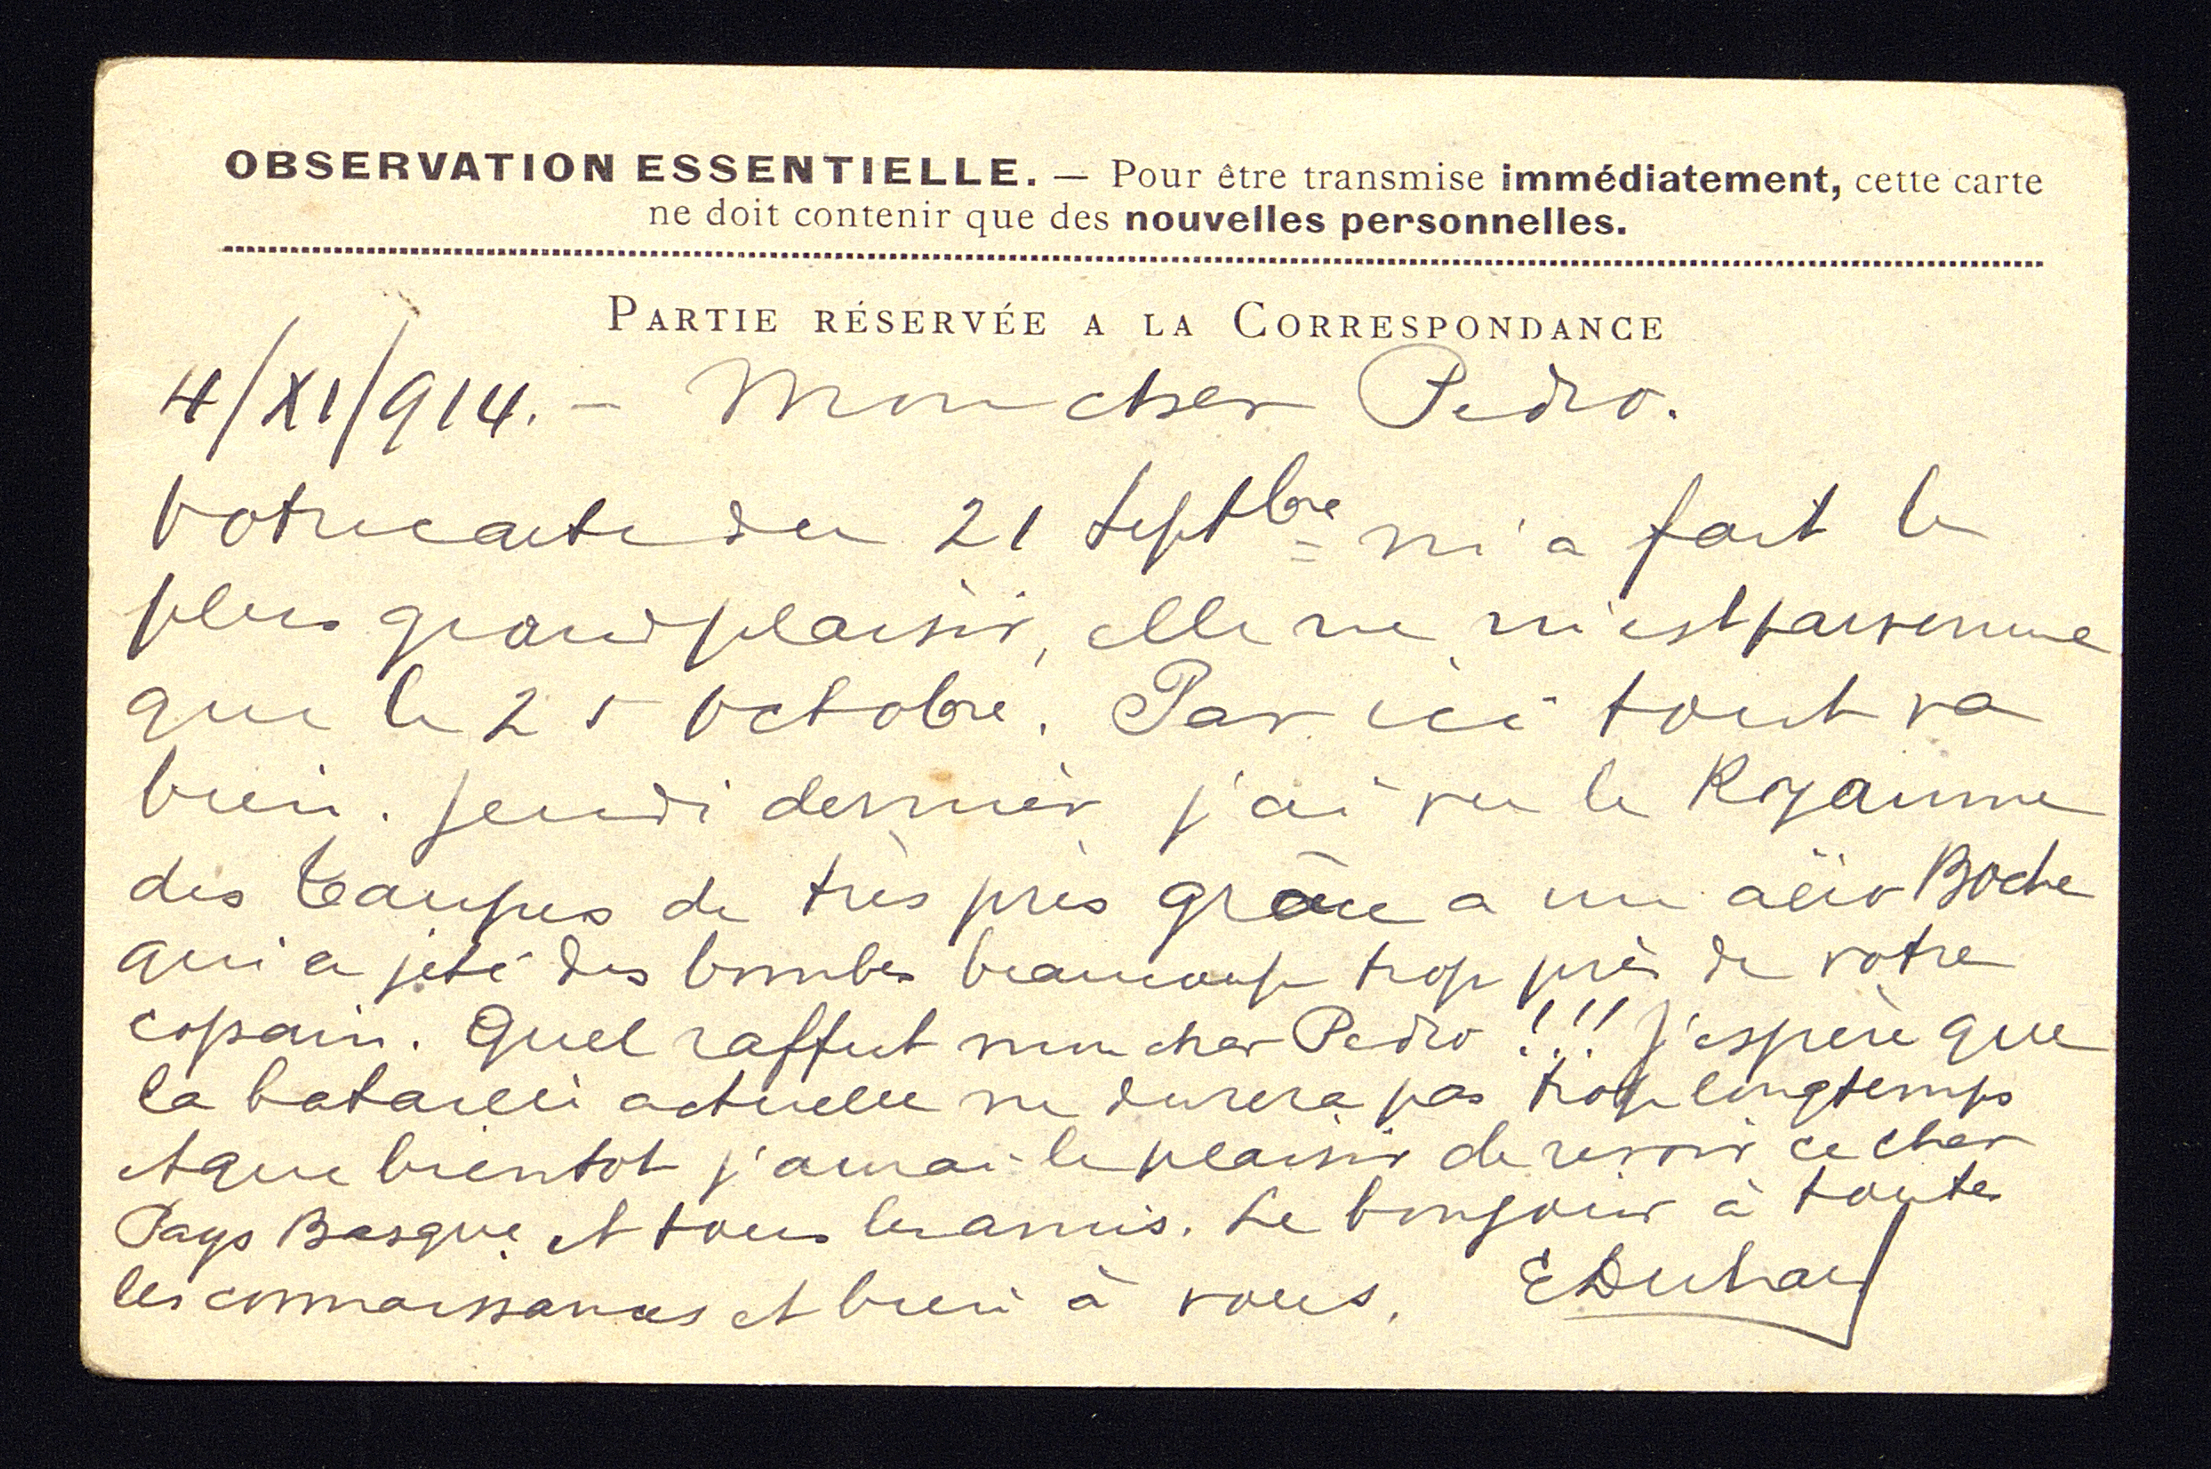 OBSERVATION ESSENTIELLE. — Pour être transmise immédiatement, cette carte
ne doit contenir que des nouvelles personnelles.
PARTIE RÉSERVÉE A LA CORRESPONDANCE
4/XI/914. - Mon cher Pedro.
Votre carte du 21 Septbre m'a fait le
plus grand plaisir, elle ne m'est parvenue
que le 25 Octobre. Par ici tout va
bien. Jeudi dernier j'ai vu le Royaume
des taupes de très près grâce a un aéro Boche
qui a jeté des bombes beaucoup trop près de votre
copain. Quel raffut mon cher Pedro !!! J'espère que
la bataille actuelle ne durera pas trop longtemps
et que bientot j'aurai le plaisir de revoir ce cher
Pays Basque et tous les amis. Le bonjour à toutes
les connaissances et bien à vous.